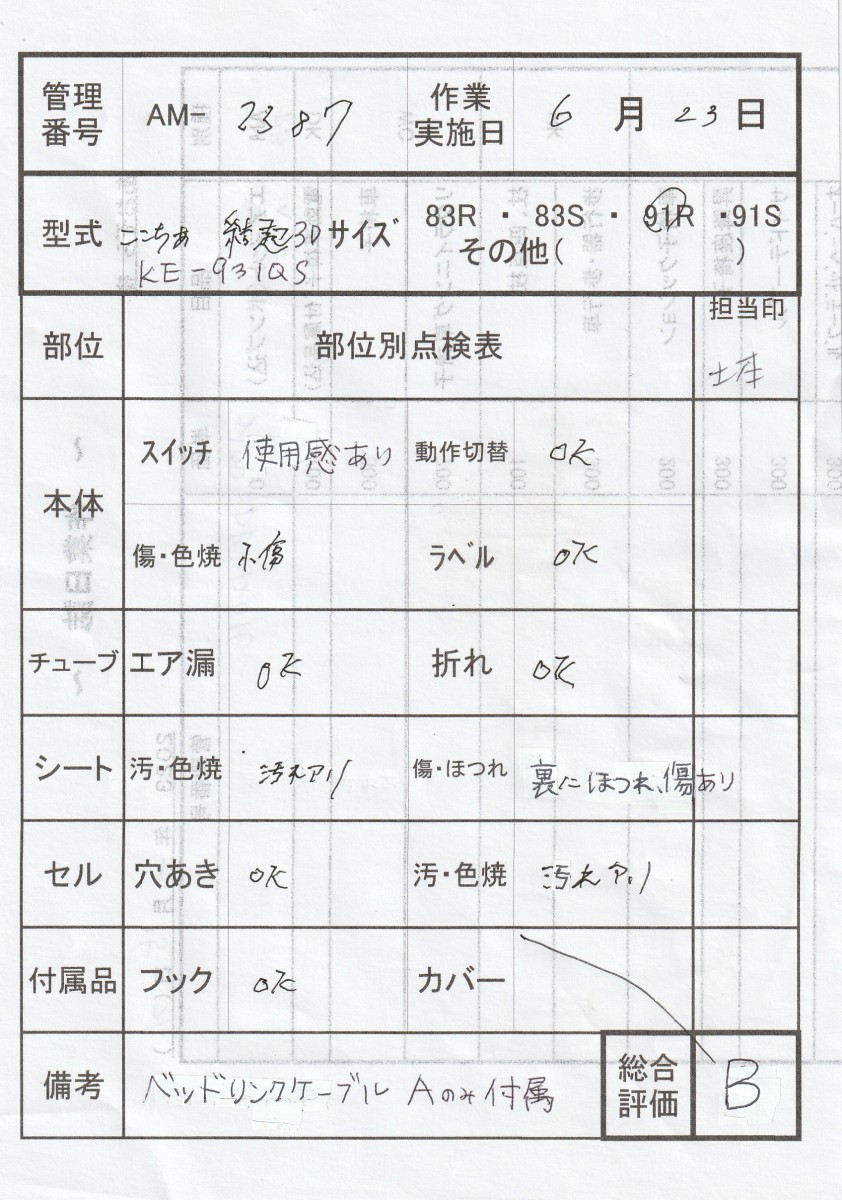 管理番号 AM- 2387 作業実施日 6月23日
型式 ここちあ 結起3D サイズ 83R ・ 83S ・ 91R ・91S
KE-931QS その他( )
部位 部位別点検表 担当印
本体 スイッチ 使用感あり 動作切替 OK
傷・色焼 小傷 ラベル OK
チューブ エア漏 OK 折れ OK
シート 汚・色焼 汚れアリ 傷・ほつれ 裏にほつれ、傷あり
セル 穴あき OK 汚・色焼 汚れアリ
付属品 フック OK カバー
備考 ベッドリンクケーブル Aのみ付属 総合評価 B